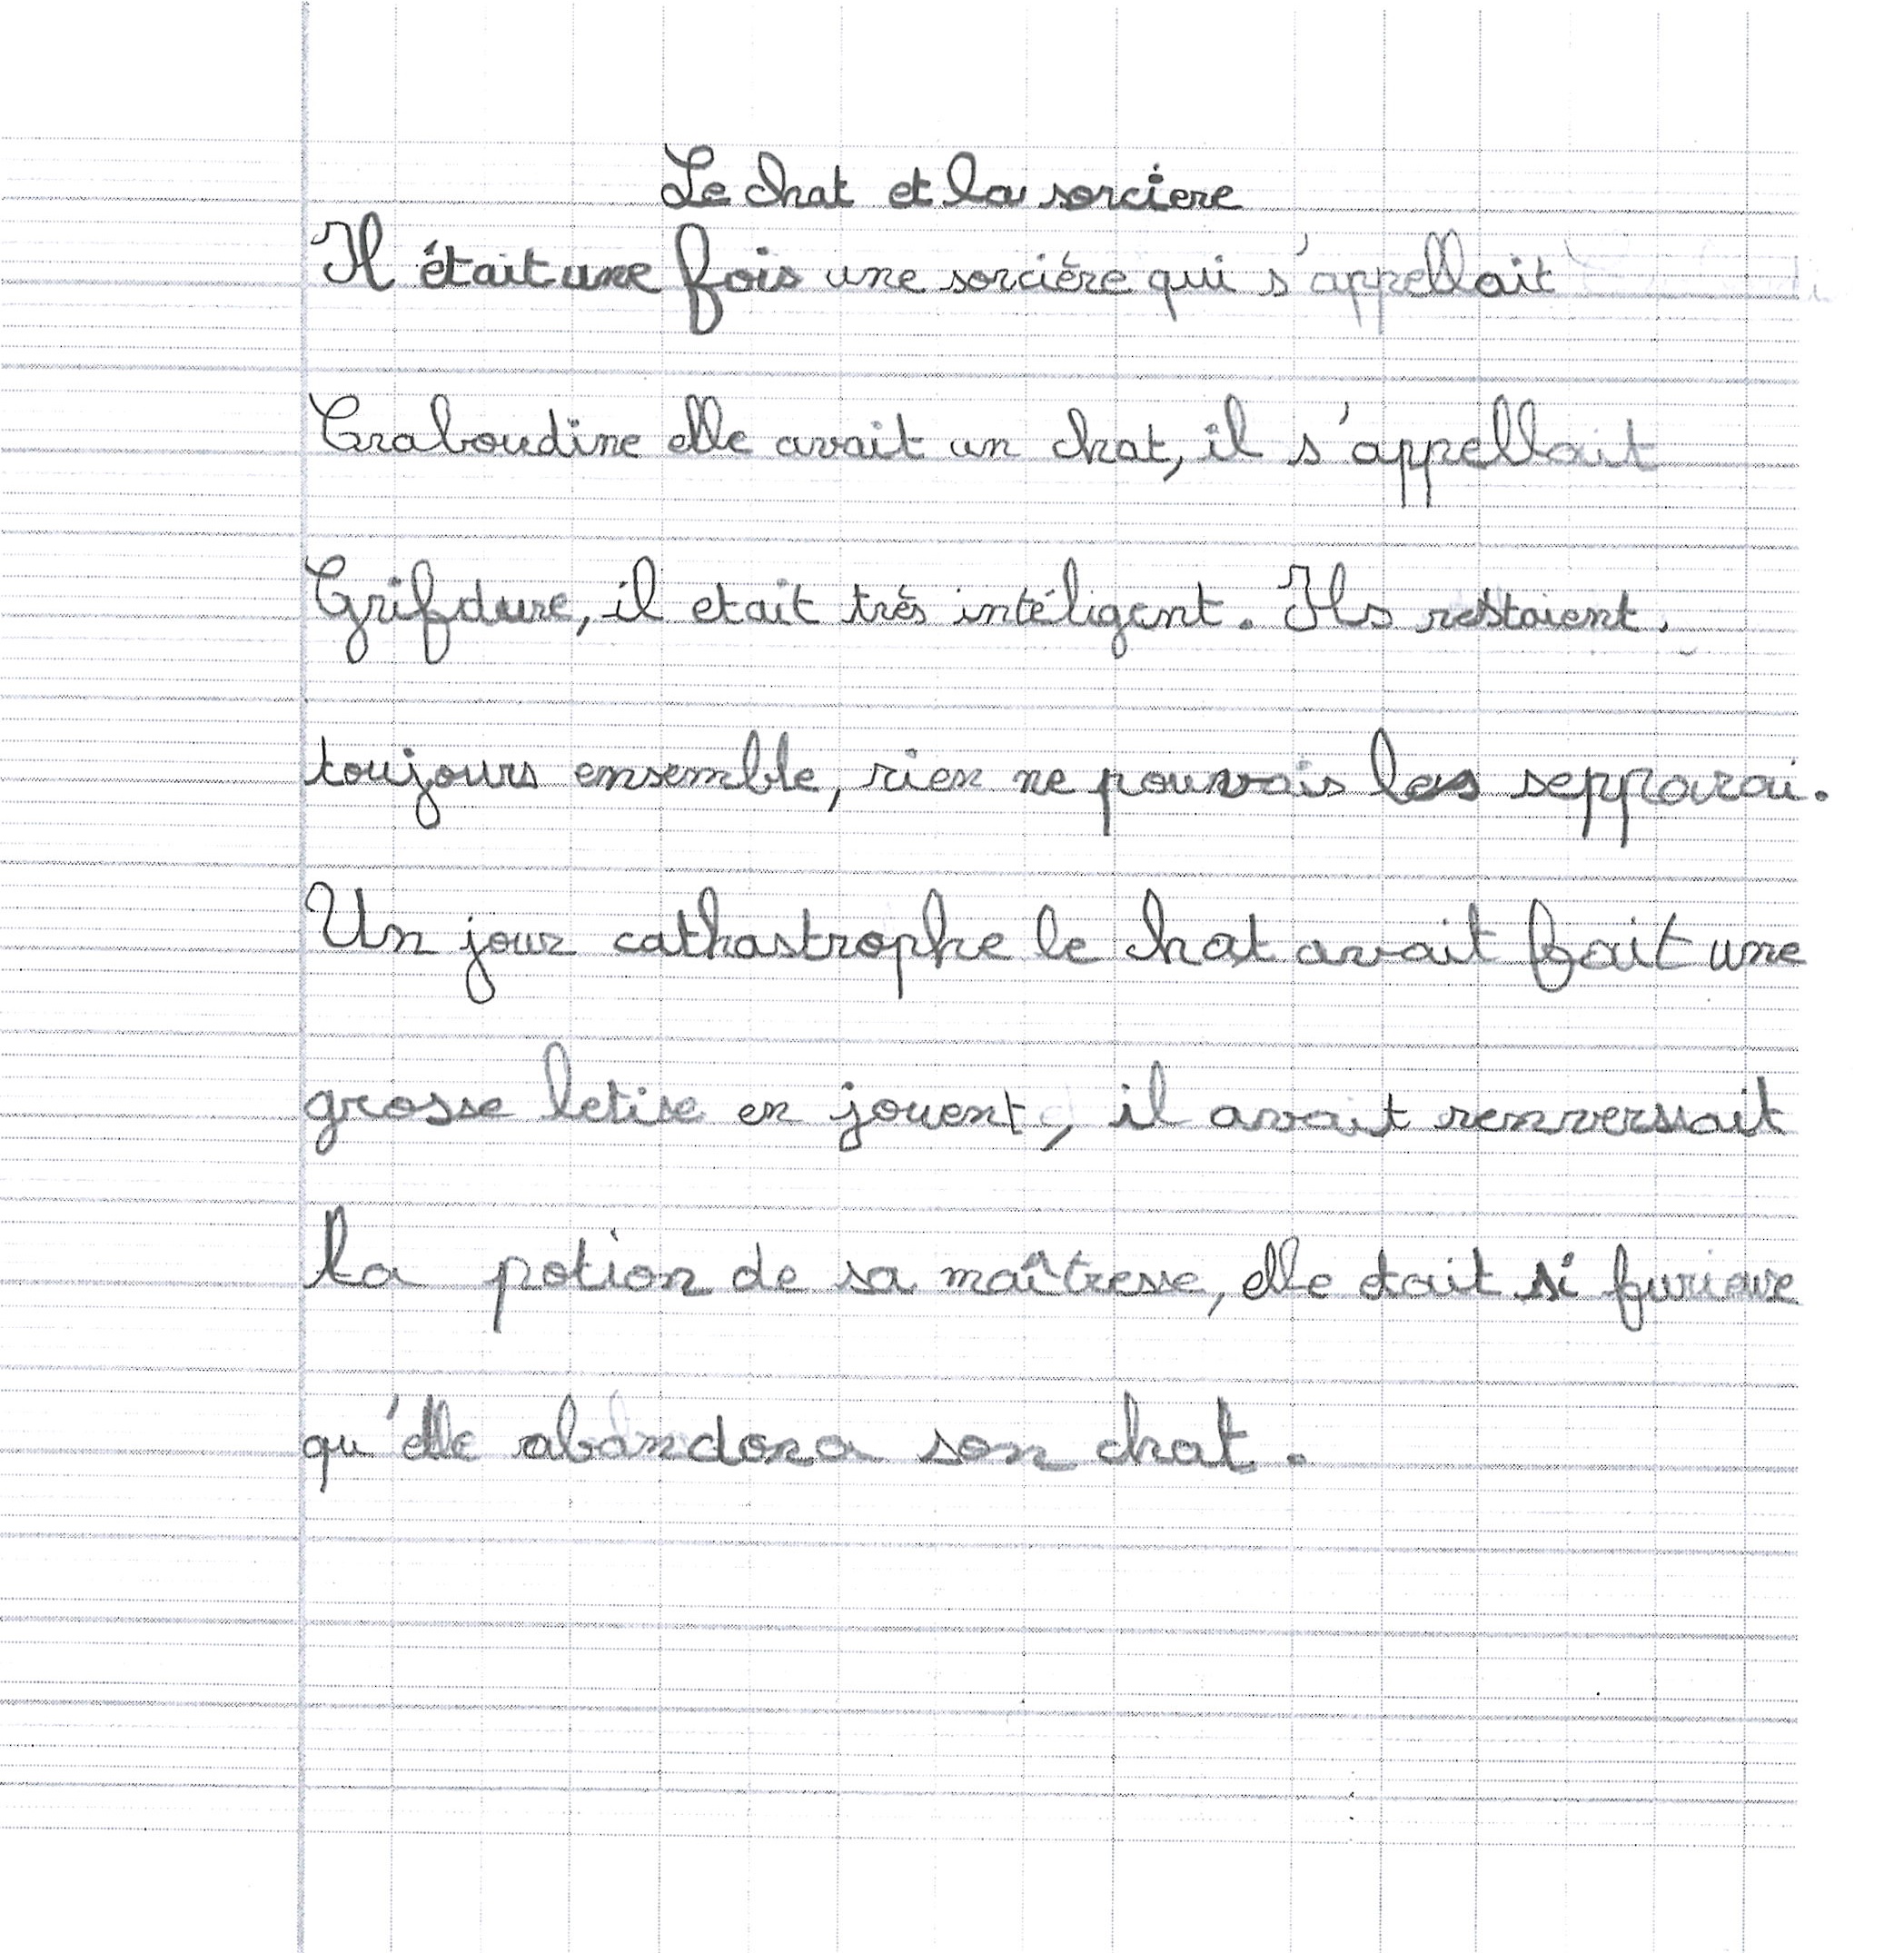 Le chat et la sorciere
Il était une fois une sorcière qui s'appellait
Craboudine elle avait un chat, il s'appellait
Grifdure, il etait très intéligent. Ils restaient.
toujours ensemble, rien ne pouvais les sepparai.
Un jour cathastrophe le chat avait fait une
grosse betise en jouent, il avait renversait
la potion de sa maîtresse, elle etait si furieuse
qu'elle abandona son chat.